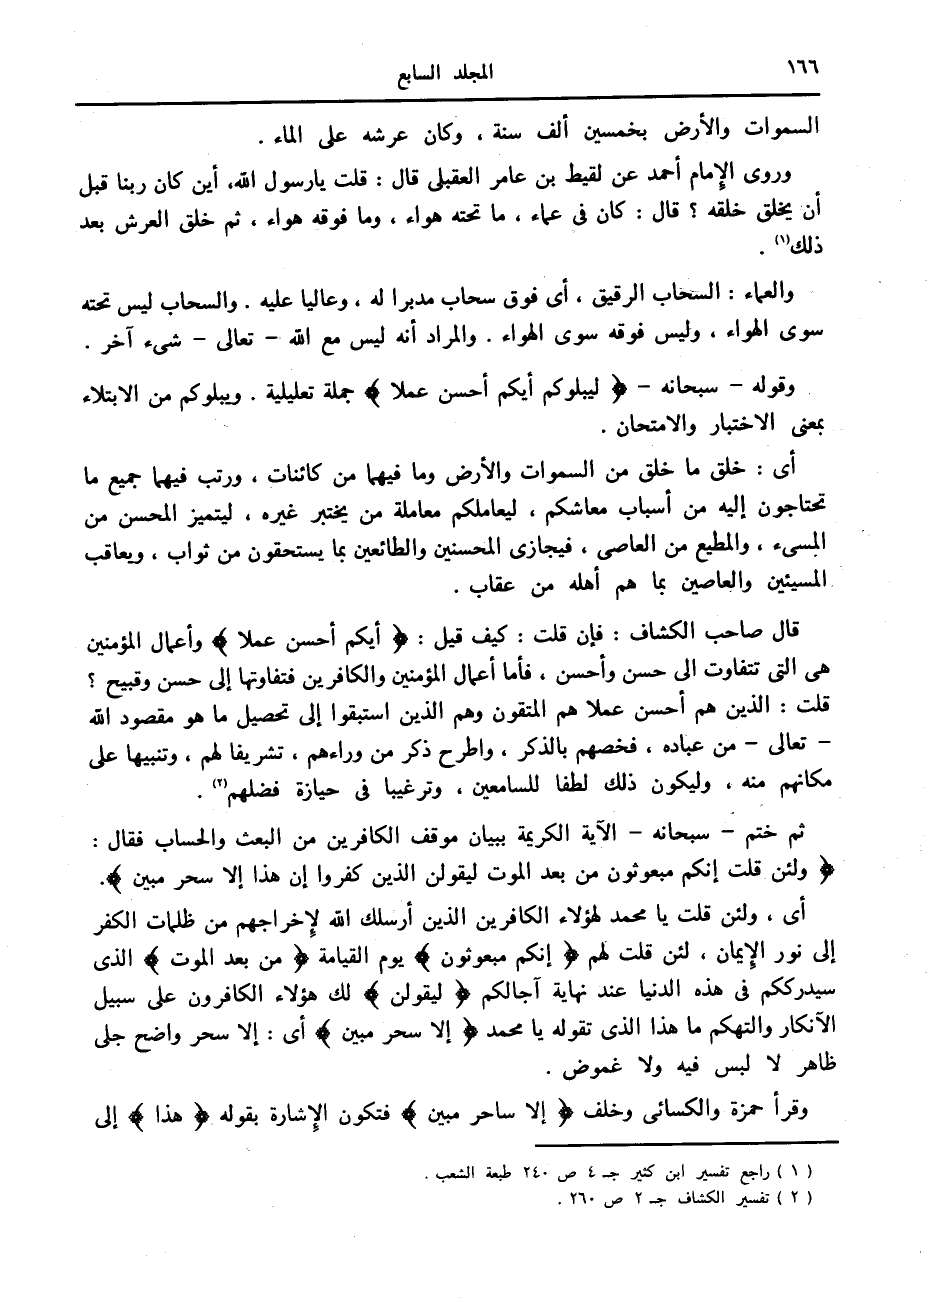 ١٦٦
المجلد السابع
السموات والأرض بخمسين ألف سنة ، وكان عرشه على الماء .
وروى الإمام أحمد عن لقيط بن عامر العقيلى قال : قلت يارسول الله، أين كان ربنا قبل
أن يخلق خلقه ؟ قال : كان فى عماء ، ما تحته هواء ، وما فوقه هواء ، ثم خلق العرش بعد
ذلك(١) .
والعماء : السحاب الرقيق ، أى فوق سحاب مدبرا له ، وعاليا عليه . والسحاب ليس تحته
سوى الهواء ، وليس فوقه سوى الهواء . والمراد أنه ليس مع الله - تعالى - شىء آخر .
وقوله - سبحانه - ﴿ ليبلوكم أيكم أحسن عملا ﴾ جملة تعليلية . ويبلوكم من الابتلاء
بمعنى الاختبار والامتحان .
أى : خلق ما خلق من السموات والأرض وما فيهما من كائنات ، ورتب فيهما جميع ما
تحتاجون إليه من أسباب معاشكم ، ليعاملكم معاملة من يختبر غيره ، ليتميز المحسن من
المسىء ، والمطيع من العاصى ، فيجازى المحسنين والطائعين بما يستحقون من ثواب ، ويعاقب
المسيئين والعاصين بما هم أهله من عقاب .
قال صاحب الكشاف : فإن قلت : كيف قيل : ﴿ أيكم أحسن عملا ﴾ وأعمال المؤمنين
هى التى تتفاوت الى حسن وأحسن ، فأما أعمال المؤمنين والكافرين فتفاوتها إلى حسن وقبيح ؟
قلت : الذين هم أحسن عملا هم المتقون وهم الذين استبقوا إلى تحصيل ما هو مقصود الله
- تعالى - من عباده ، فخصهم بالذكر ، واطرح ذكر من وراءهم ، تشريفا لهم ، وتنبيها على
مكانهم منه ، وليكون ذلك لطفا للسامعين ، وترغيبا فى حيازة فضلهم(٢) .
ثم ختم - سبحانه - الآية الكريمة ببيان موقف الكافرين من البعث والحساب فقال :
﴿ ولئن قلت إنكم مبعوثون من بعد الموت ليقولن الذين كفروا إن هذا إلا سحر مبين ﴾.
أى ، ولئن قلت يا محمد لهؤلاء الكافرين الذين أرسلك الله لإخراجهم من ظلمات الكفر
إلى نور الإيمان ، لئن قلت لهم ﴿ إنكم مبعوثون ﴾ يوم القيامة ﴿ من بعد الموت ﴾ الذى
سيدرككم فى هذه الدنيا عند نهاية آجالكم ﴿ ليقولن ﴾ لك هؤلاء الكافرون على سبيل
الأنكار والتهكم ما هذا الذى تقوله يا محمد ﴿ إلا سحر مبين ﴾ أى : إلا سحر واضح جلى
ظاهر لا لبس فيه ولا غموض .
وقرأ حمزة والكسائى وخلف ﴿ إلا ساحر مبين ﴾ فتكون الإشارة بقوله ﴿ هذا ﴾ إلى
( ١ ) راجع تفسير ابن كثير جـ ٤ ص ٢٤٠ طبعة الشعب .
( ٢ ) تفسير الكشاف جـ ٢ ص ٢٦٠ .